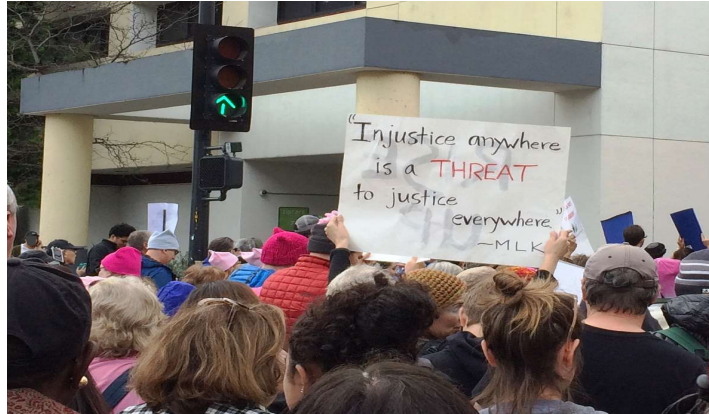 "Injustice anywhere
is a THREAT
to justice
everywhere"
~MLK